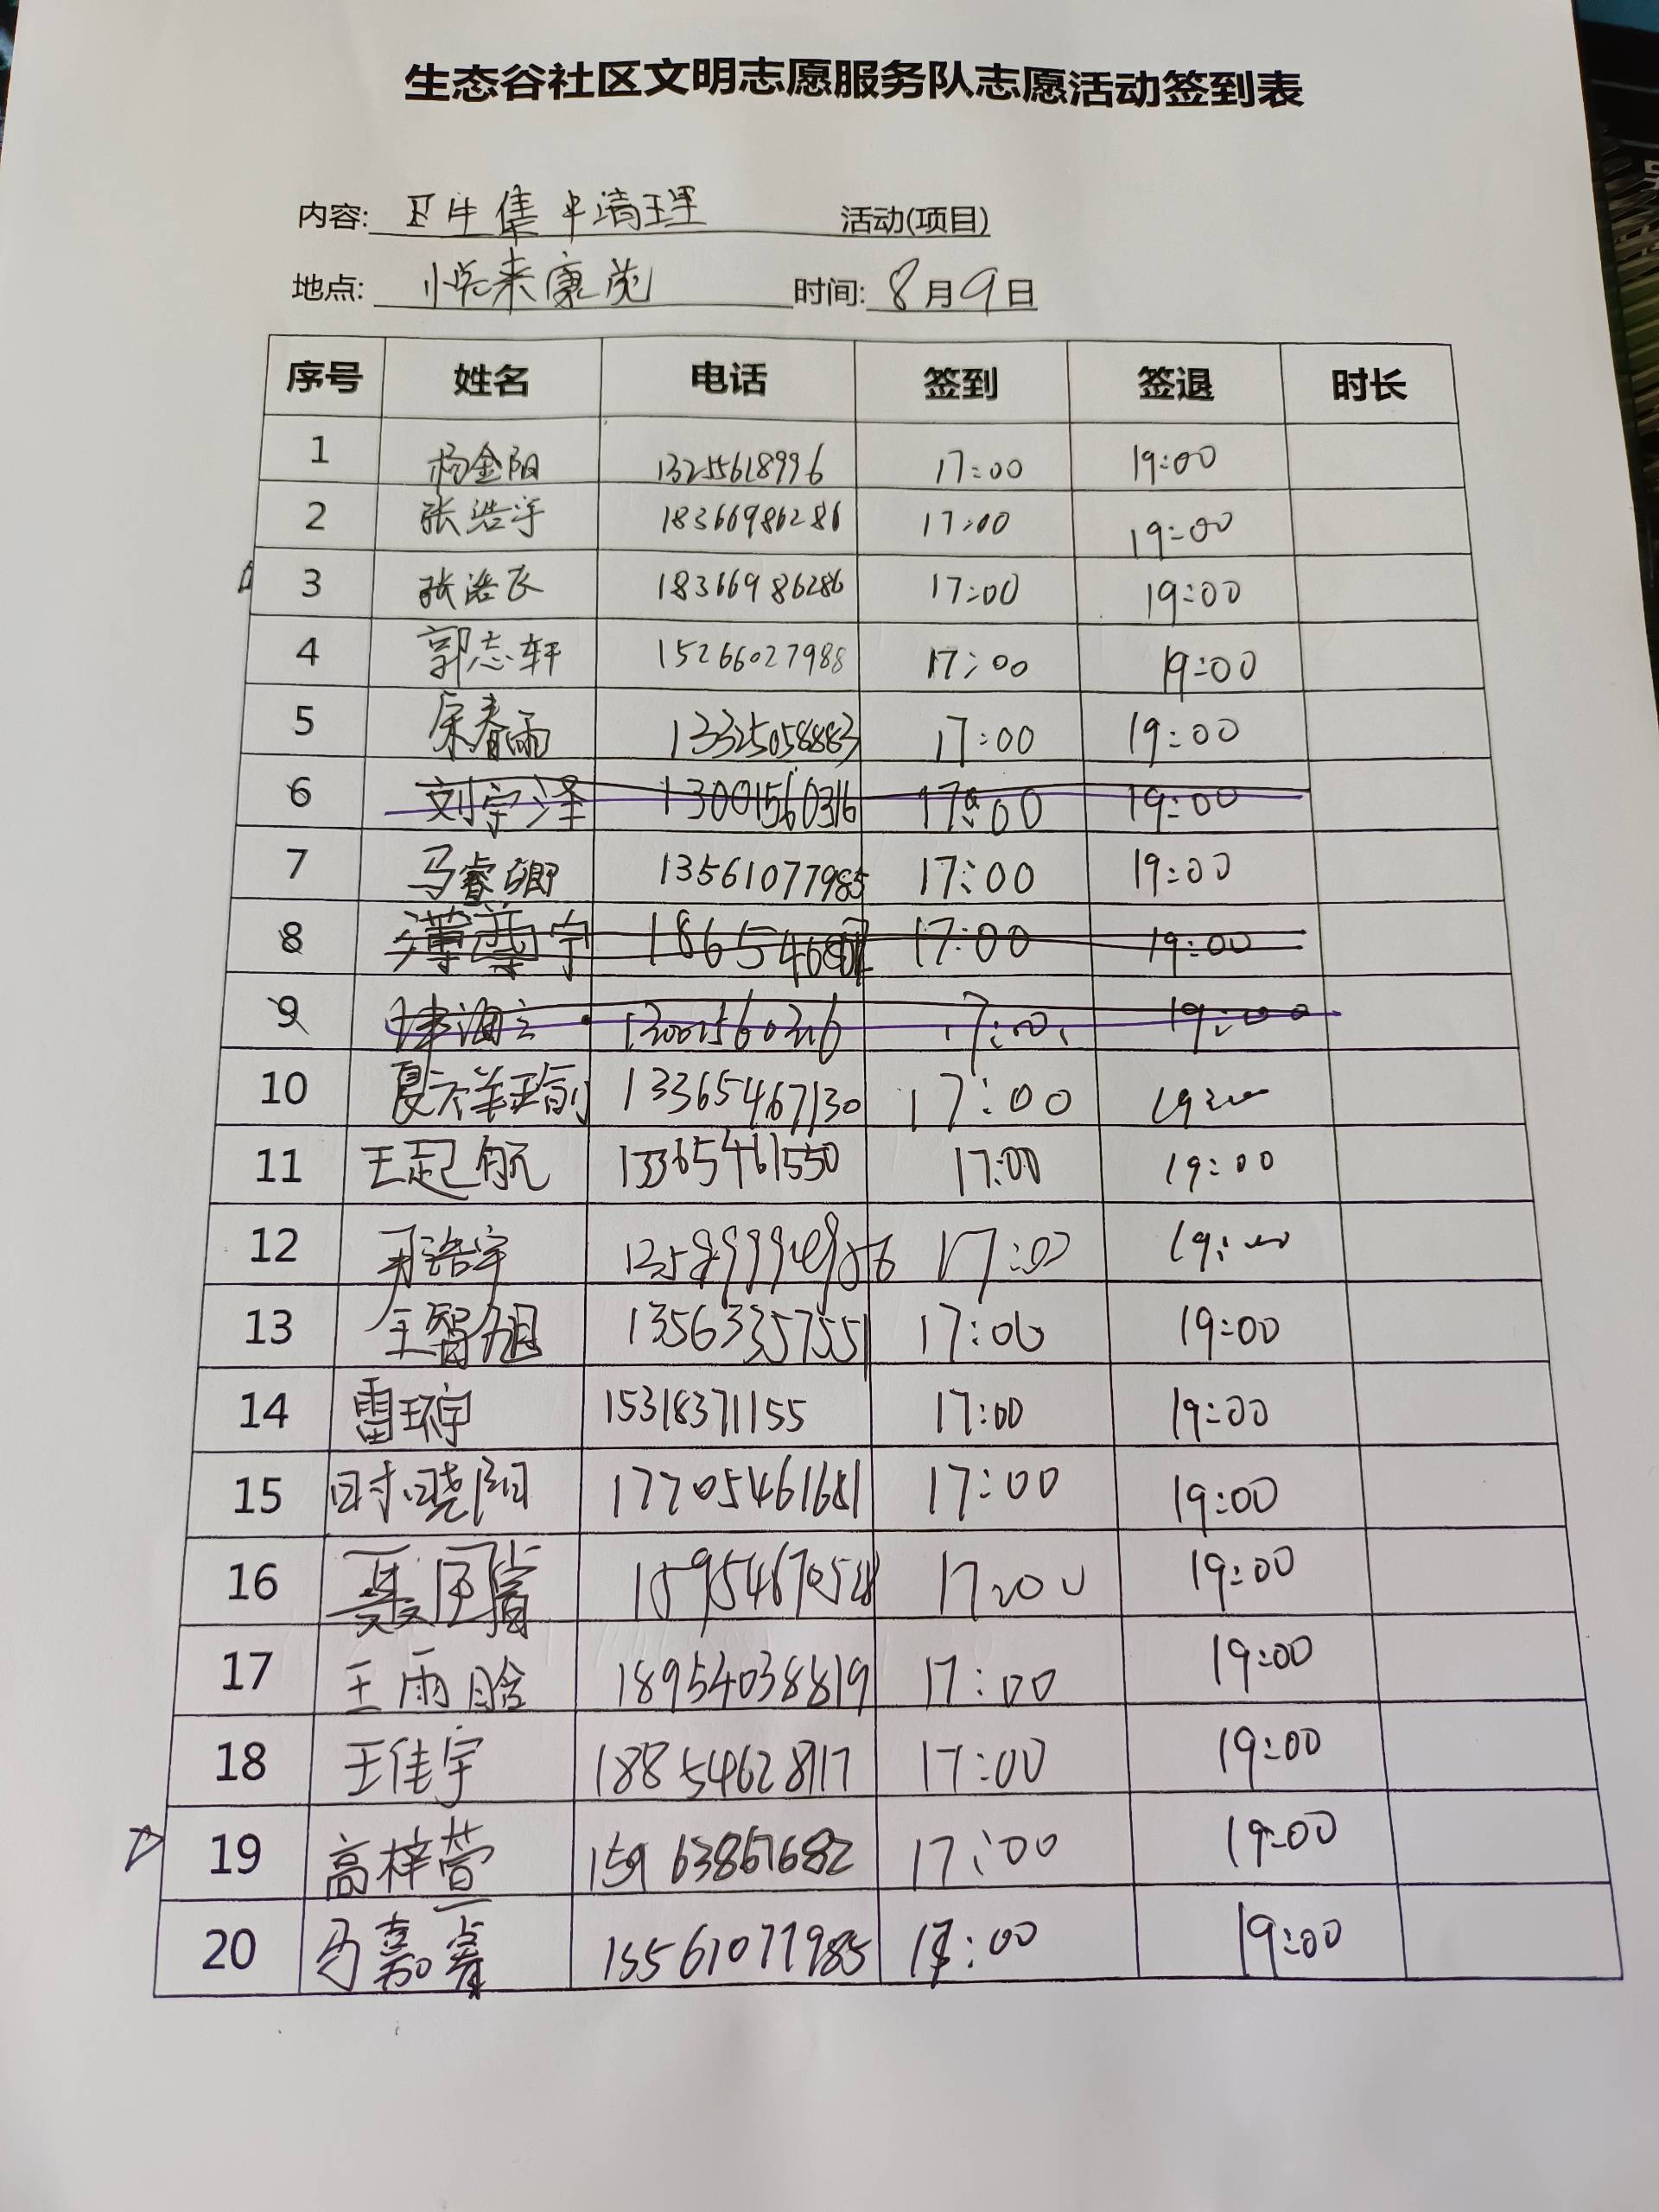 生态谷社区文明志愿服务队志愿活动签到表
内容: 卫生集中清理 活动(项目)
地点: 悦来康苑 时间: 8月9日
序号 姓名 电话 签到 签退 时长
1 杨金阳 13255618996 17:00 19:00
2 张浩宇 18366986286 17:00 19:00
3 张浩辰 18366986286 17:00 19:00
4 郭志轩 15266027988 17:00 19:00
5 宋春雨 13325058883 17:00 19:00
6 刘宇泽 13001560316 17:00 19:00
7 马睿卿 13561077985 17:00 19:00
8 17:00 19:00
9 17:00 19:00
10 13365467130 17:00 19:00
11 王起航 13365461550 17:00 19:00
12 17:00 19:00
13 王智旭 13563357551 17:00 19:00
14 雷环宇 15318371155 17:00 19:00
15 时晓阳 17705461681 17:00 19:00
16 17:00 19:00
17 王雨晗 18954038819 17:00 19:00
18 王佳宇 18854628717 17:00 19:00
19 高梓萱 15963867682 17:00 19:00
20 马嘉睿 13561077985 17:00 19:00